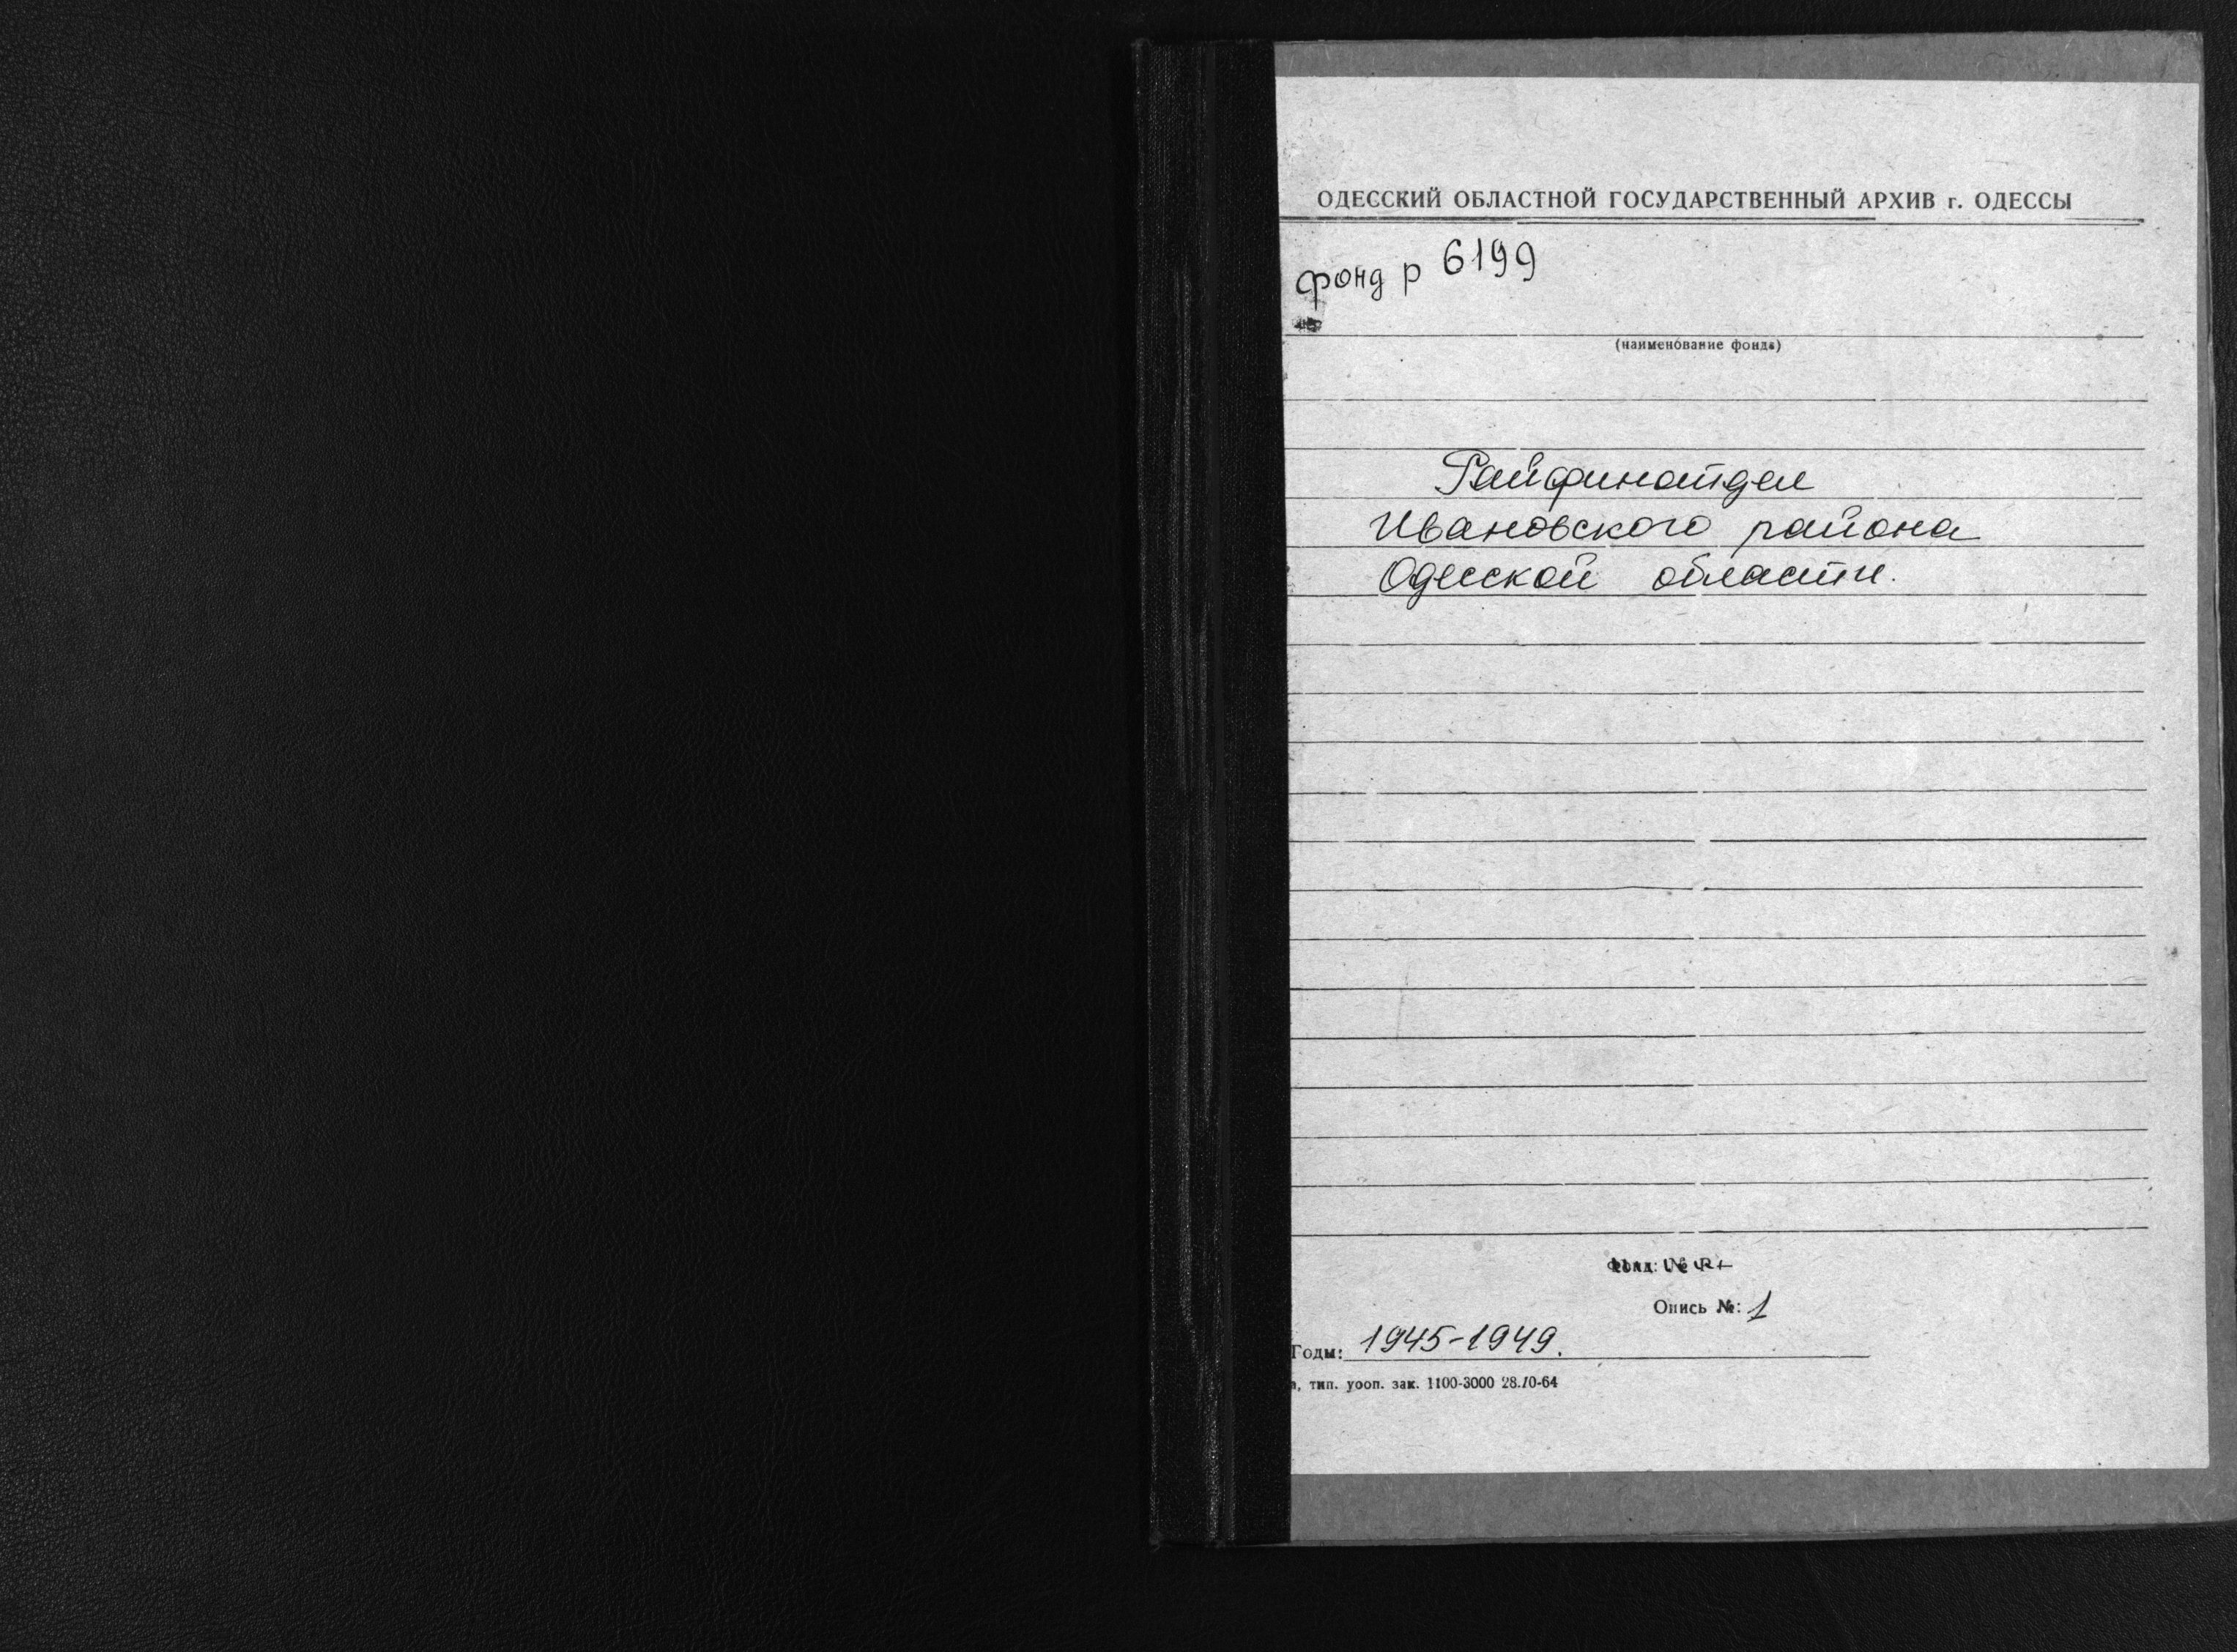 ОДЕССКИЙ ОБЛАСТНОЙ ГОСУДАРСТВЕННЫЙ АРХИВ г. ОДЕССЫ
фонд р 6199
(наименование фонда)
Райфинотдел
Ивановского района
Одесской области.
Фонд: №
Опись №: 1
Годы: 1945-1949.
тип. уооп. зак. 1100-3000 28.10-64